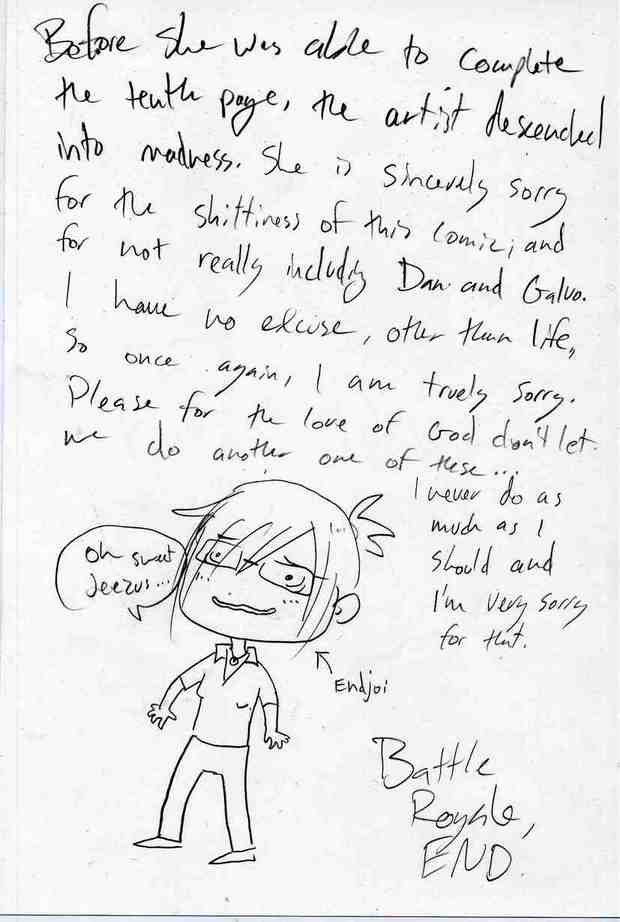 Before She was able to complete
the tenth page, the artist descended
into madness. She is sincerely sorry
for the shittiness of this comic, and
for not really including Dan and Galvo.
I have no excuse, other than life,
So once again, I am truely sorry.
Please for the love of God don't let
me do another one of these...
I never do as
much as I
should and
I'm very sorry
for that.
Oh sweet
Jeezus...
Endjoi
Battle
Royale,
END.